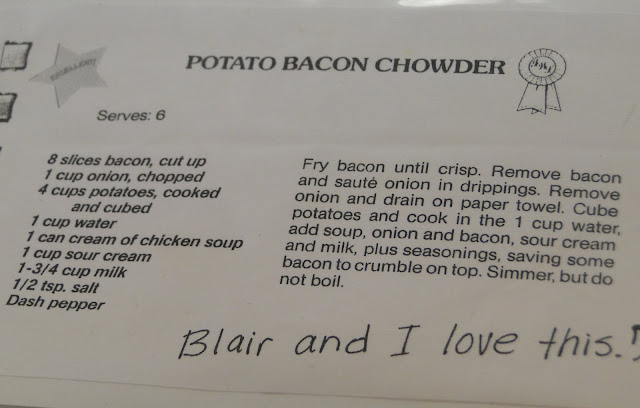 EXCELLENT!
POTATO BACON CHOWDER
Serves: 6
8 slices bacon, cut up
1 cup onion, chopped
4 cups potatoes, cooked
and cubed
1 cup water
1 can cream of chicken soup
1 cup sour cream
1-3/4 cup milk
1/2 tsp. salt
Dash pepper
Fry bacon until crisp. Remove bacon
and sauté onion in drippings. Remove
onion and drain on paper towel. Cube
potatoes and cook in the 1 cup water,
add soup, onion and bacon, sour cream
and milk, plus seasonings, saving some
bacon to crumble on top. Simmer, but do
not boil.
Blair and I love this.